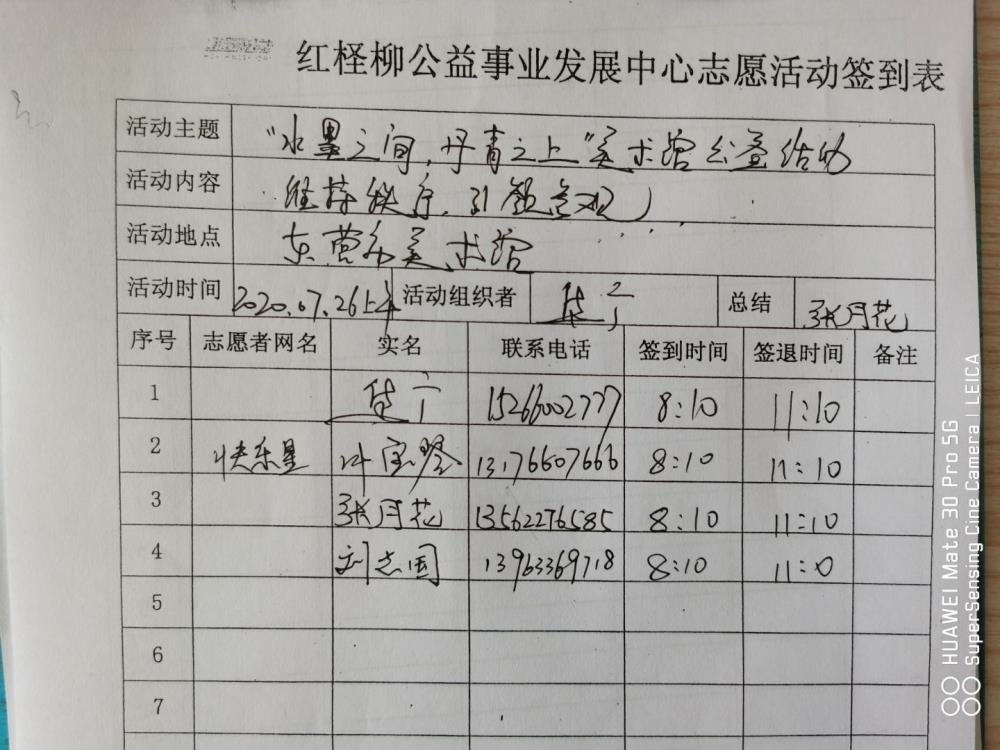 红柽柳公益事业发展中心志愿活动签到表
活动主题 “水墨之间,丹青之上”美术馆公益活动
活动内容 维持秩序,引领参观
活动地点 东营市美术馆
活动时间 2020.07.26上午 活动组织者 总结 张月花
序号 志愿者网名 实名 联系电话 签到时间 签退时间 备注
1 15266002777 8:10 11:10
2 快乐星 13176607666 8:10 11:10
3 张月花 13562276585 8:10 11:10
4 刘志国 13963369718 8:10 11:0
5
6
7
HUAWEI Mate 30 Pro 5G
SuperSensing Cine Camera | LEICA